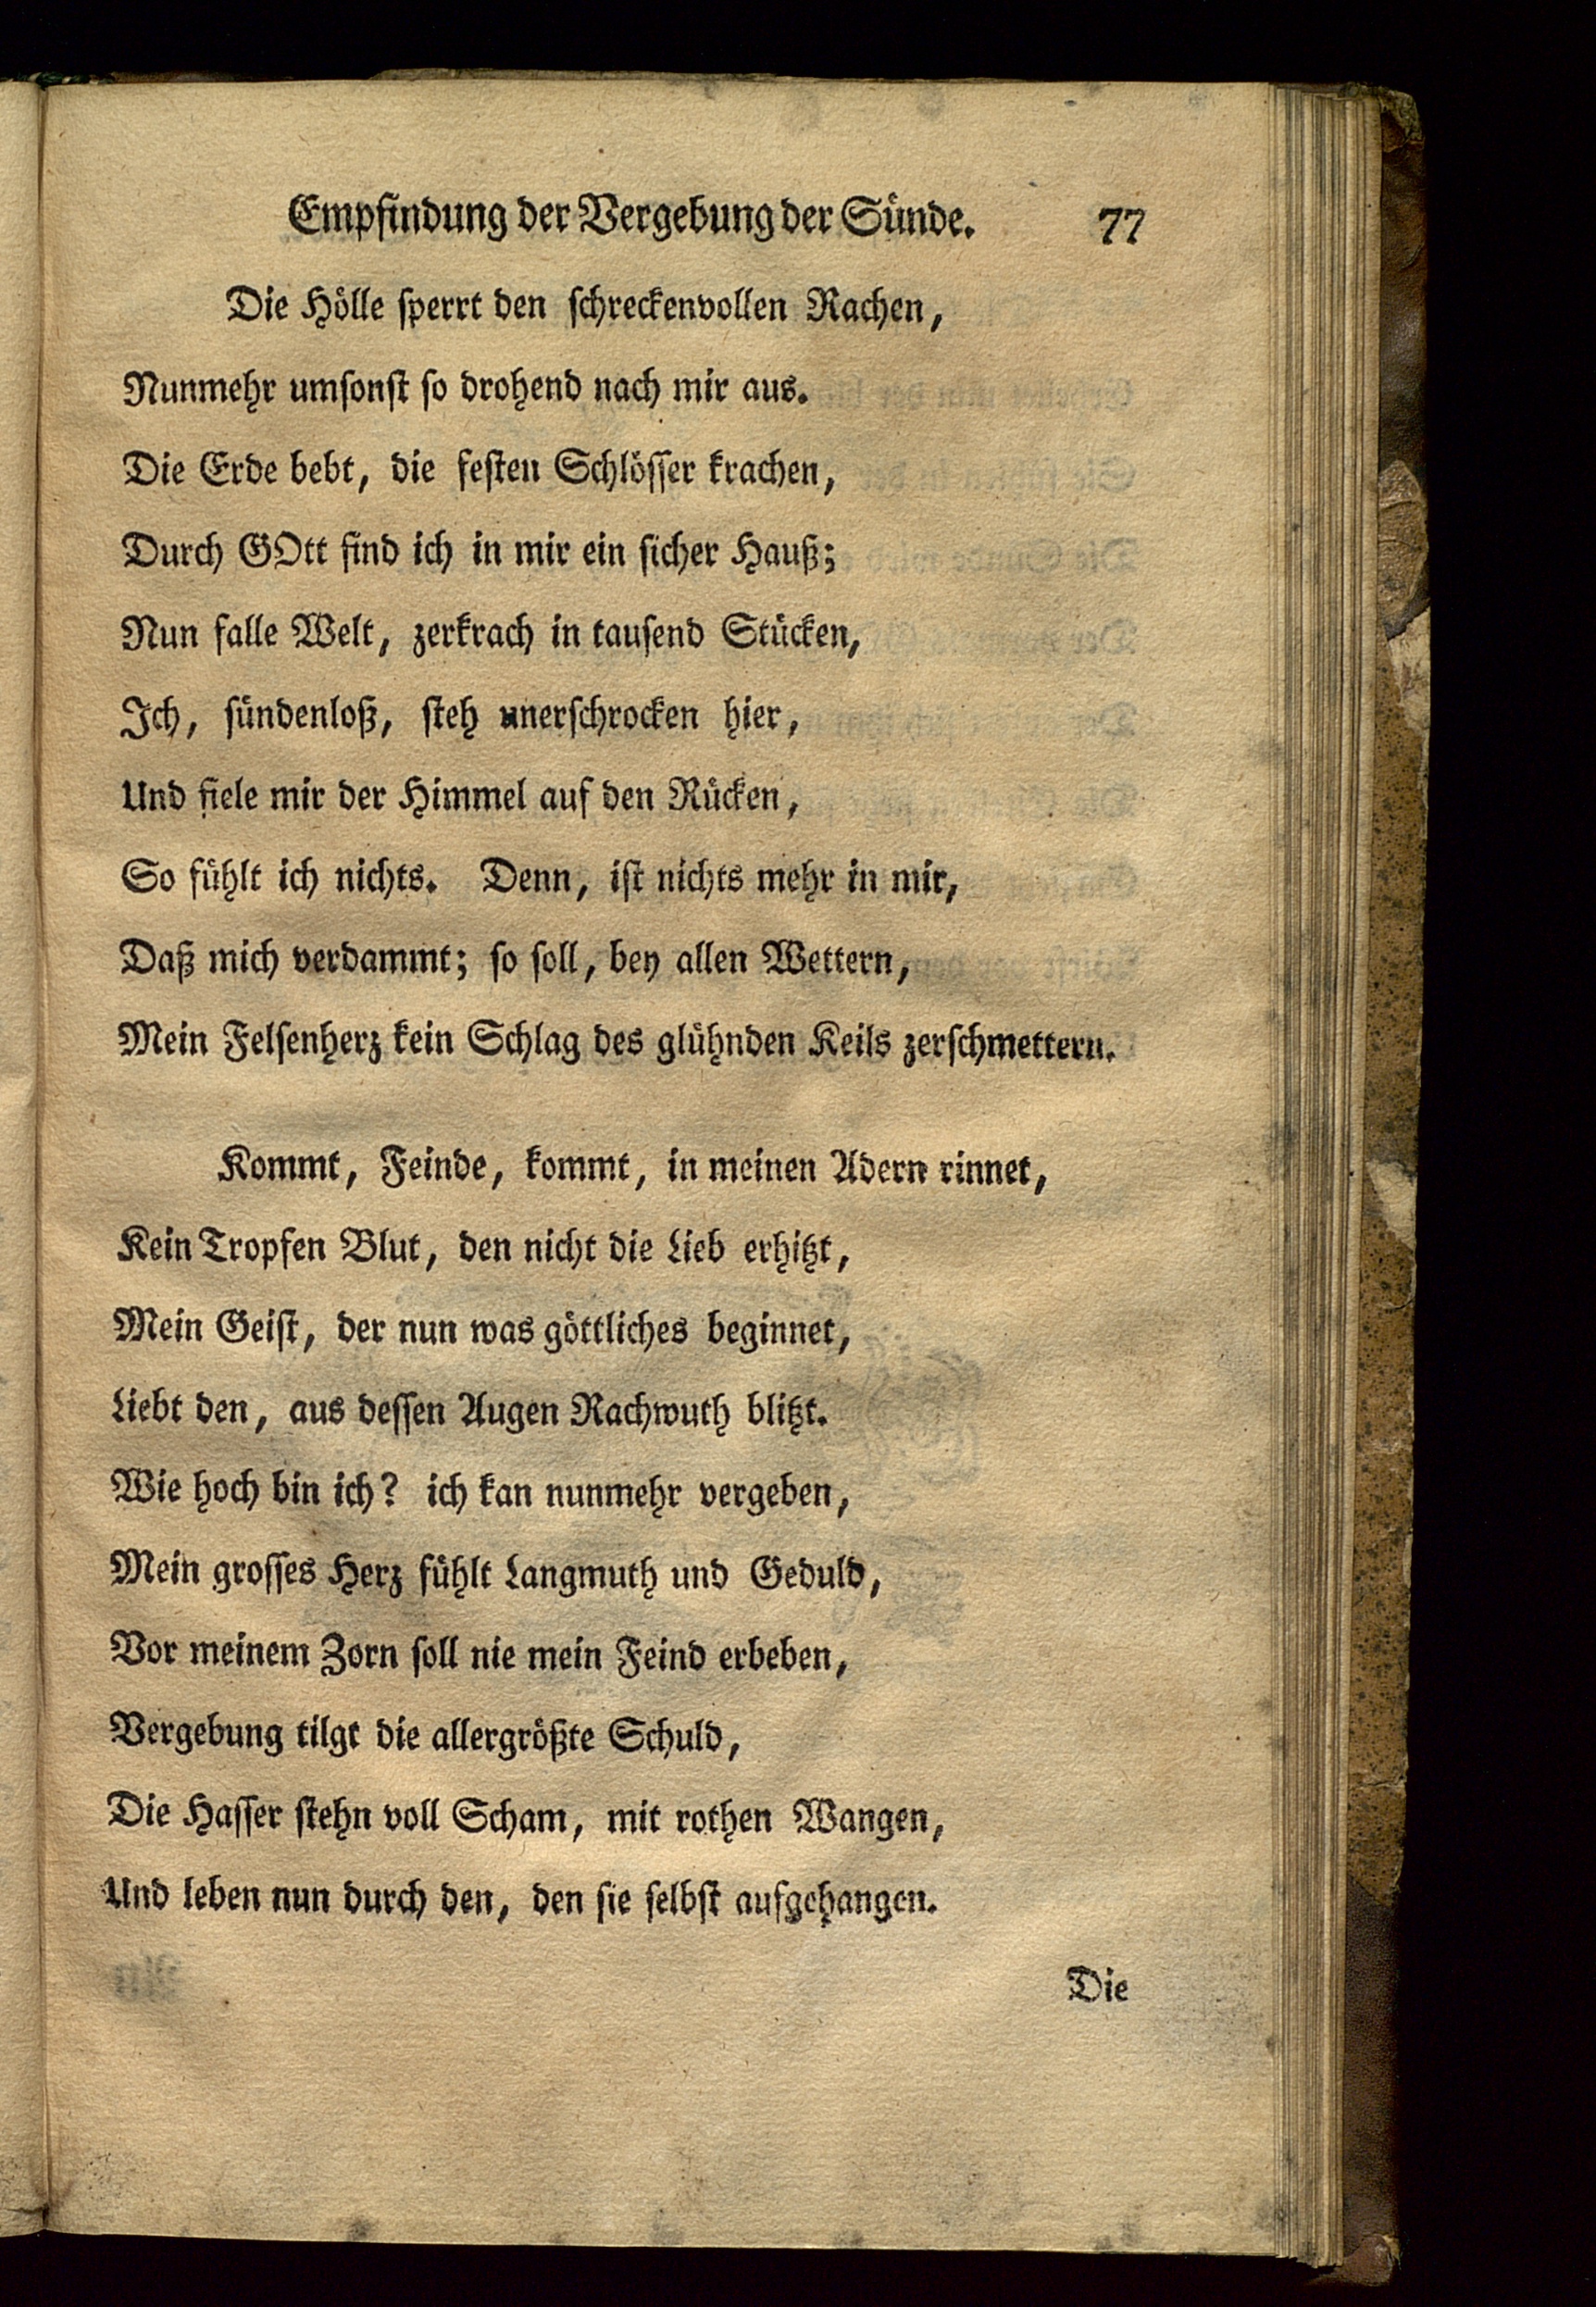 Empfindung der Vergebung der Sünde. 77
Die Hölle sperrt den schreckenvollen Rachen,
Nunmehr umsonst so drohend nach mir aus.
Die Erde bebt, die festen Schlösser krachen,
Durch GOtt find ich in mir ein sicher Hauß;
Nun falle Welt, zerkrach in tausend Stücken,
Ich, sündenloß, steh unerschrocken hier,
Und fiele mir der Himmel auf den Rücken,
So fühlt ich nichts. Denn, ist nichts mehr in mir,
Daß mich verdammt; so soll, bey allen Wettern,
Mein Felsenherz kein Schlag des glühnden Keils zerschmettern.
Kommt, Feinde, kommt, in meinen Adern rinnet,
Kein Tropfen Blut, den nicht die Lieb erhitzt,
Mein Geist, der nun was göttliches beginnet,
Liebt den, aus dessen Augen Rachwuth blitzt.
Wie hoch bin ich? ich kan nunmehr vergeben,
Mein grosses Herz fühlt Langmuth und Geduld,
Vor meinem Zorn soll nie mein Feind erbeben,
Vergebung tilgt die allergrößte Schuld,
Die Hasser stehn voll Scham, mit rothen Wangen,
Und leben nun durch den, den sie selbst aufgehangen.
Die